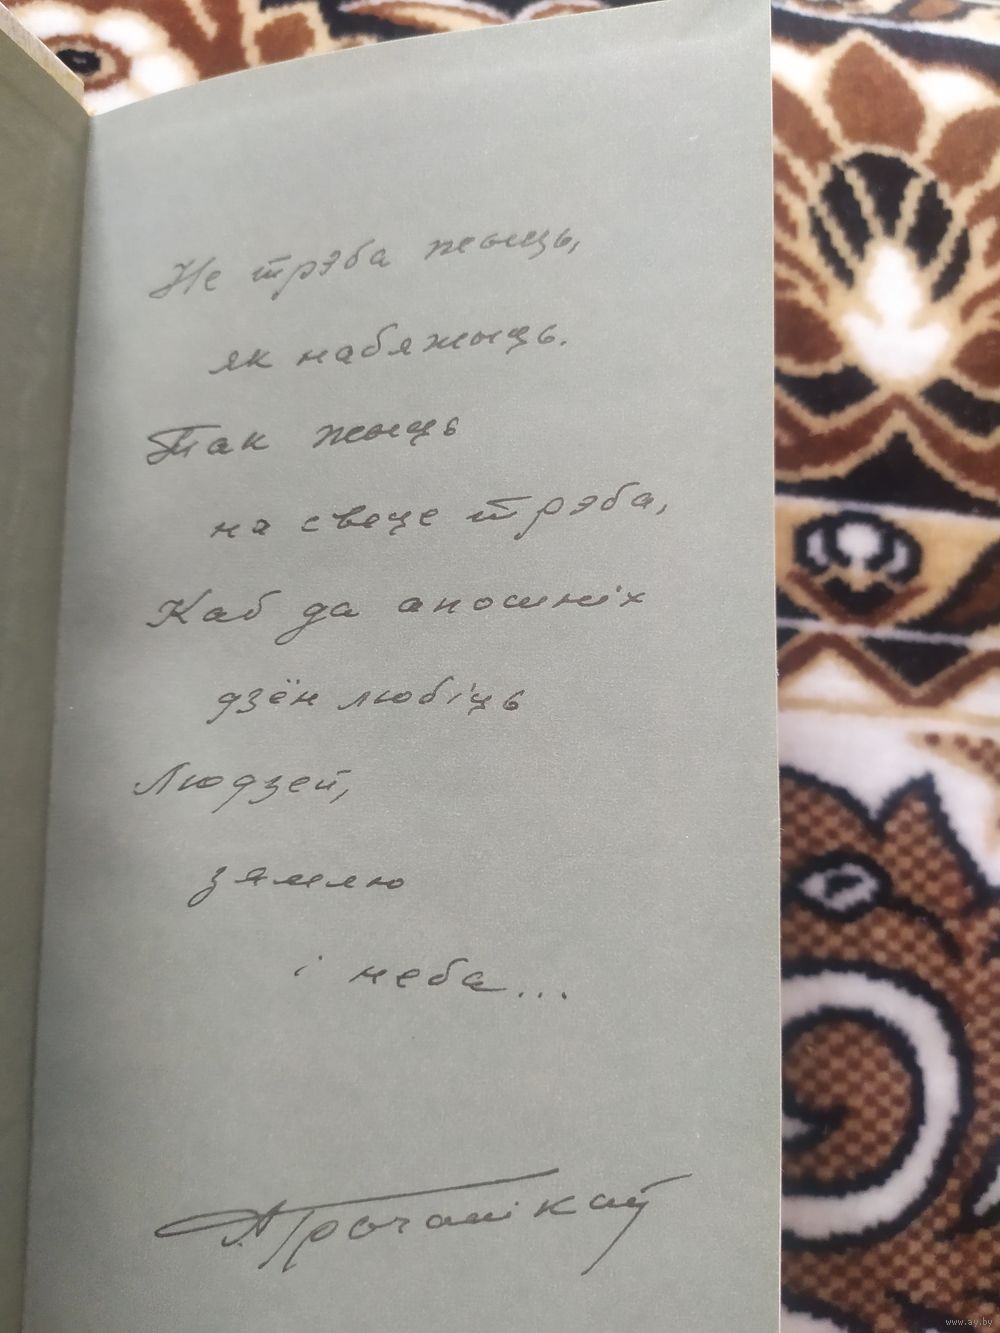 Не трэба жыць,
як набяжыць.
Так жыць
на свеце трэба,
Каб да апошніх
дзён любіць
Людзей,
зямлю
і неба...
А Грачанікаў
www.ay.by